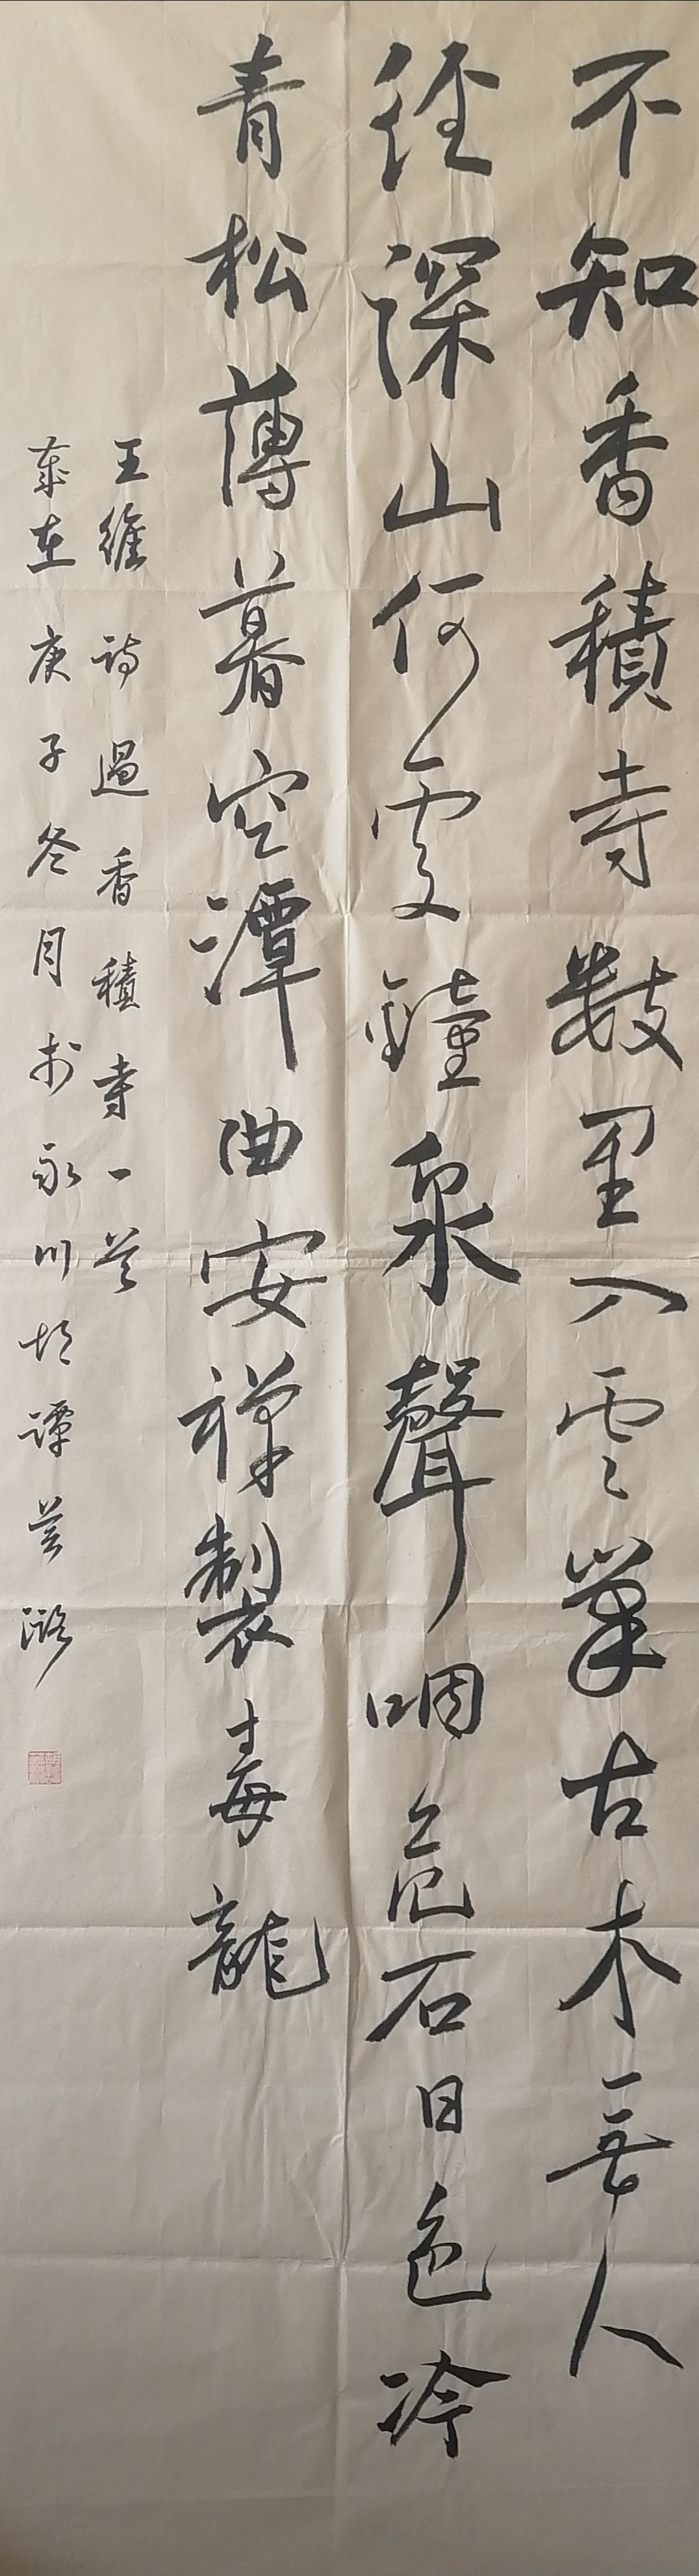 不知香積寺數里入雲峯古木無人
徑深山何處鐘泉聲咽危石日色冷
青松薄暮空潭曲安禪製毒龍
王維詩過香積寺一首
歲在庚子冬月於永川